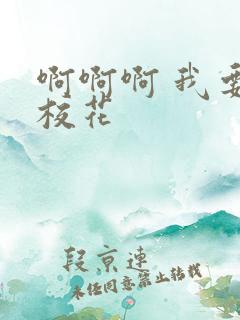 啊啊啊 我 要
校花
段京连
未经同意禁止转载